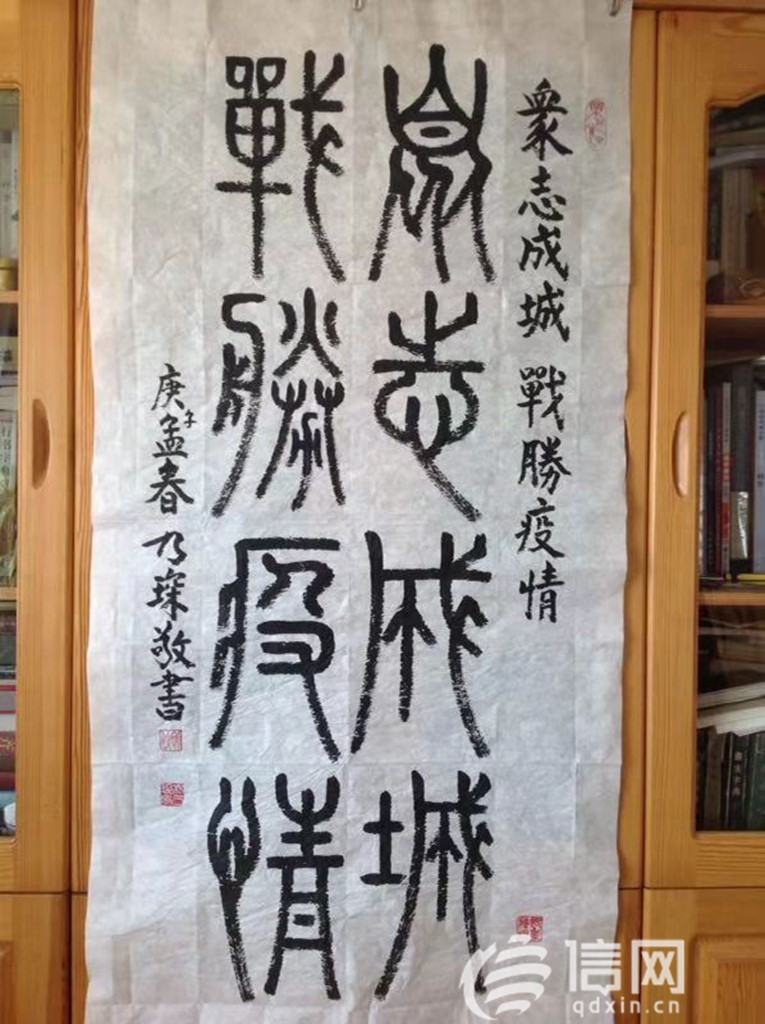 衆志成城 戰勝疫情
衆志成城
戰勝疫情
庚子孟春 乃琛敬書
信网
qdxin.cn